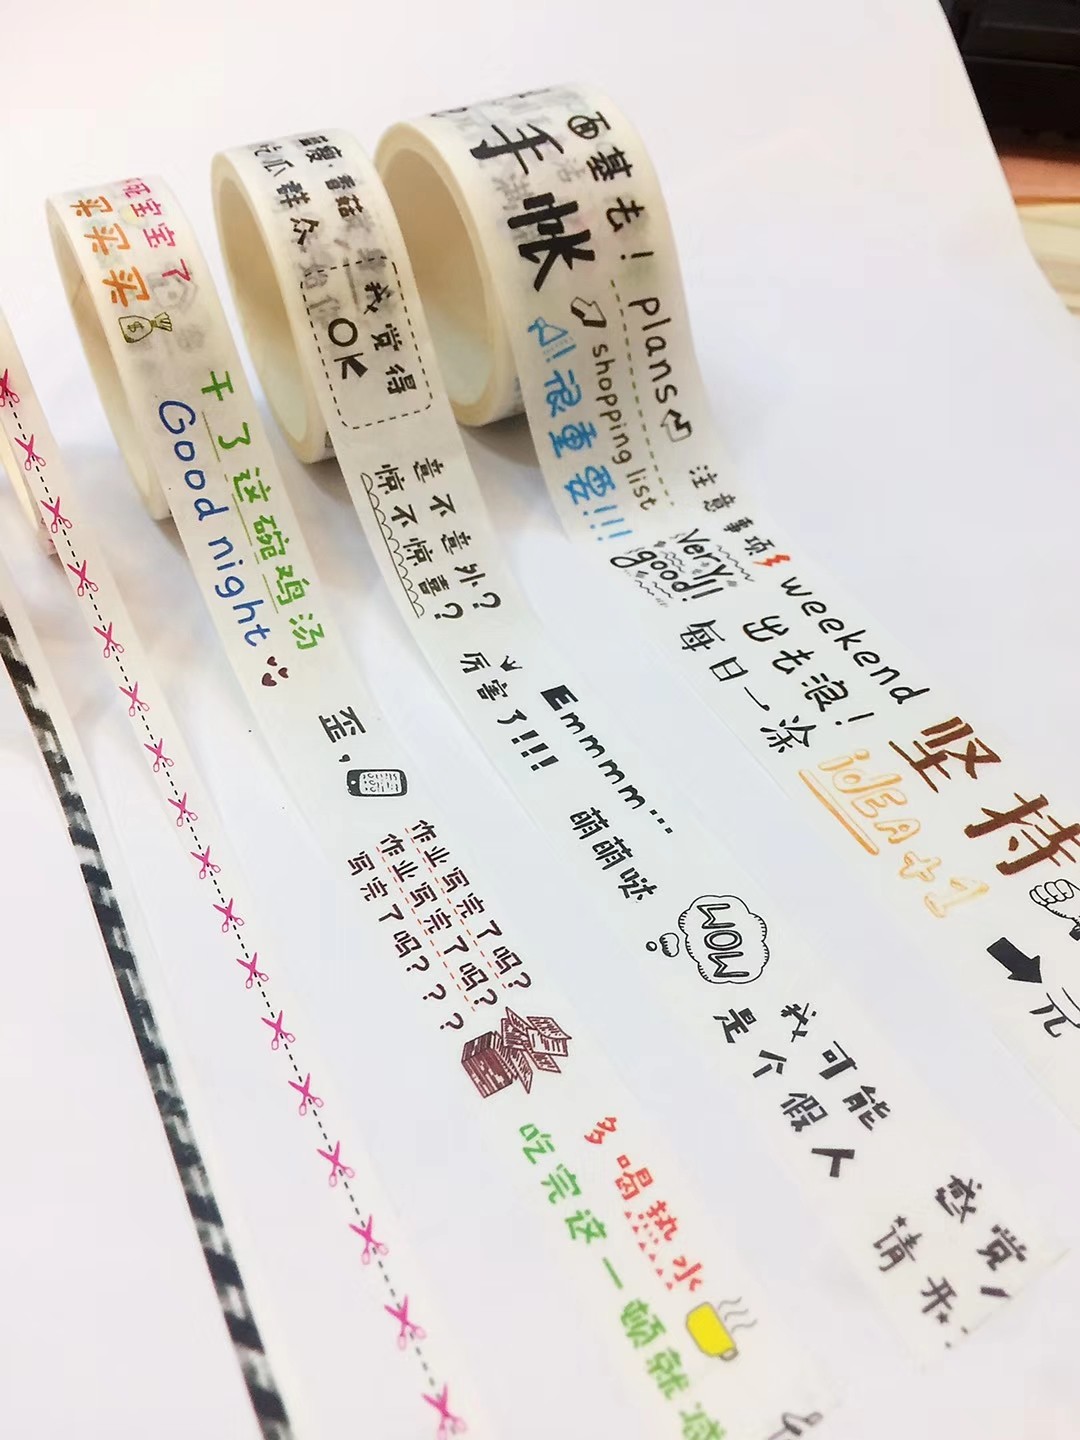 宝宝了
买买买
干了这碗鸡汤
Good night
歪，
作业写完了吗?
作业写完了吗?
写完了吗???
多喝热水
吃完这一顿就
蓝瘦·香菇
吃瓜群众
我觉得
OK
意不意外?
惊不惊喜?
厉害了!!!
Emmmm...
萌萌哒
WOW
我可能
是个假人
感觉
请开
面基去!
手帐
plans
shopping list
很重要!!!
注意事项
Very
good!
weekend
出去浪!
每日一涂
坚持
idEA+1
元